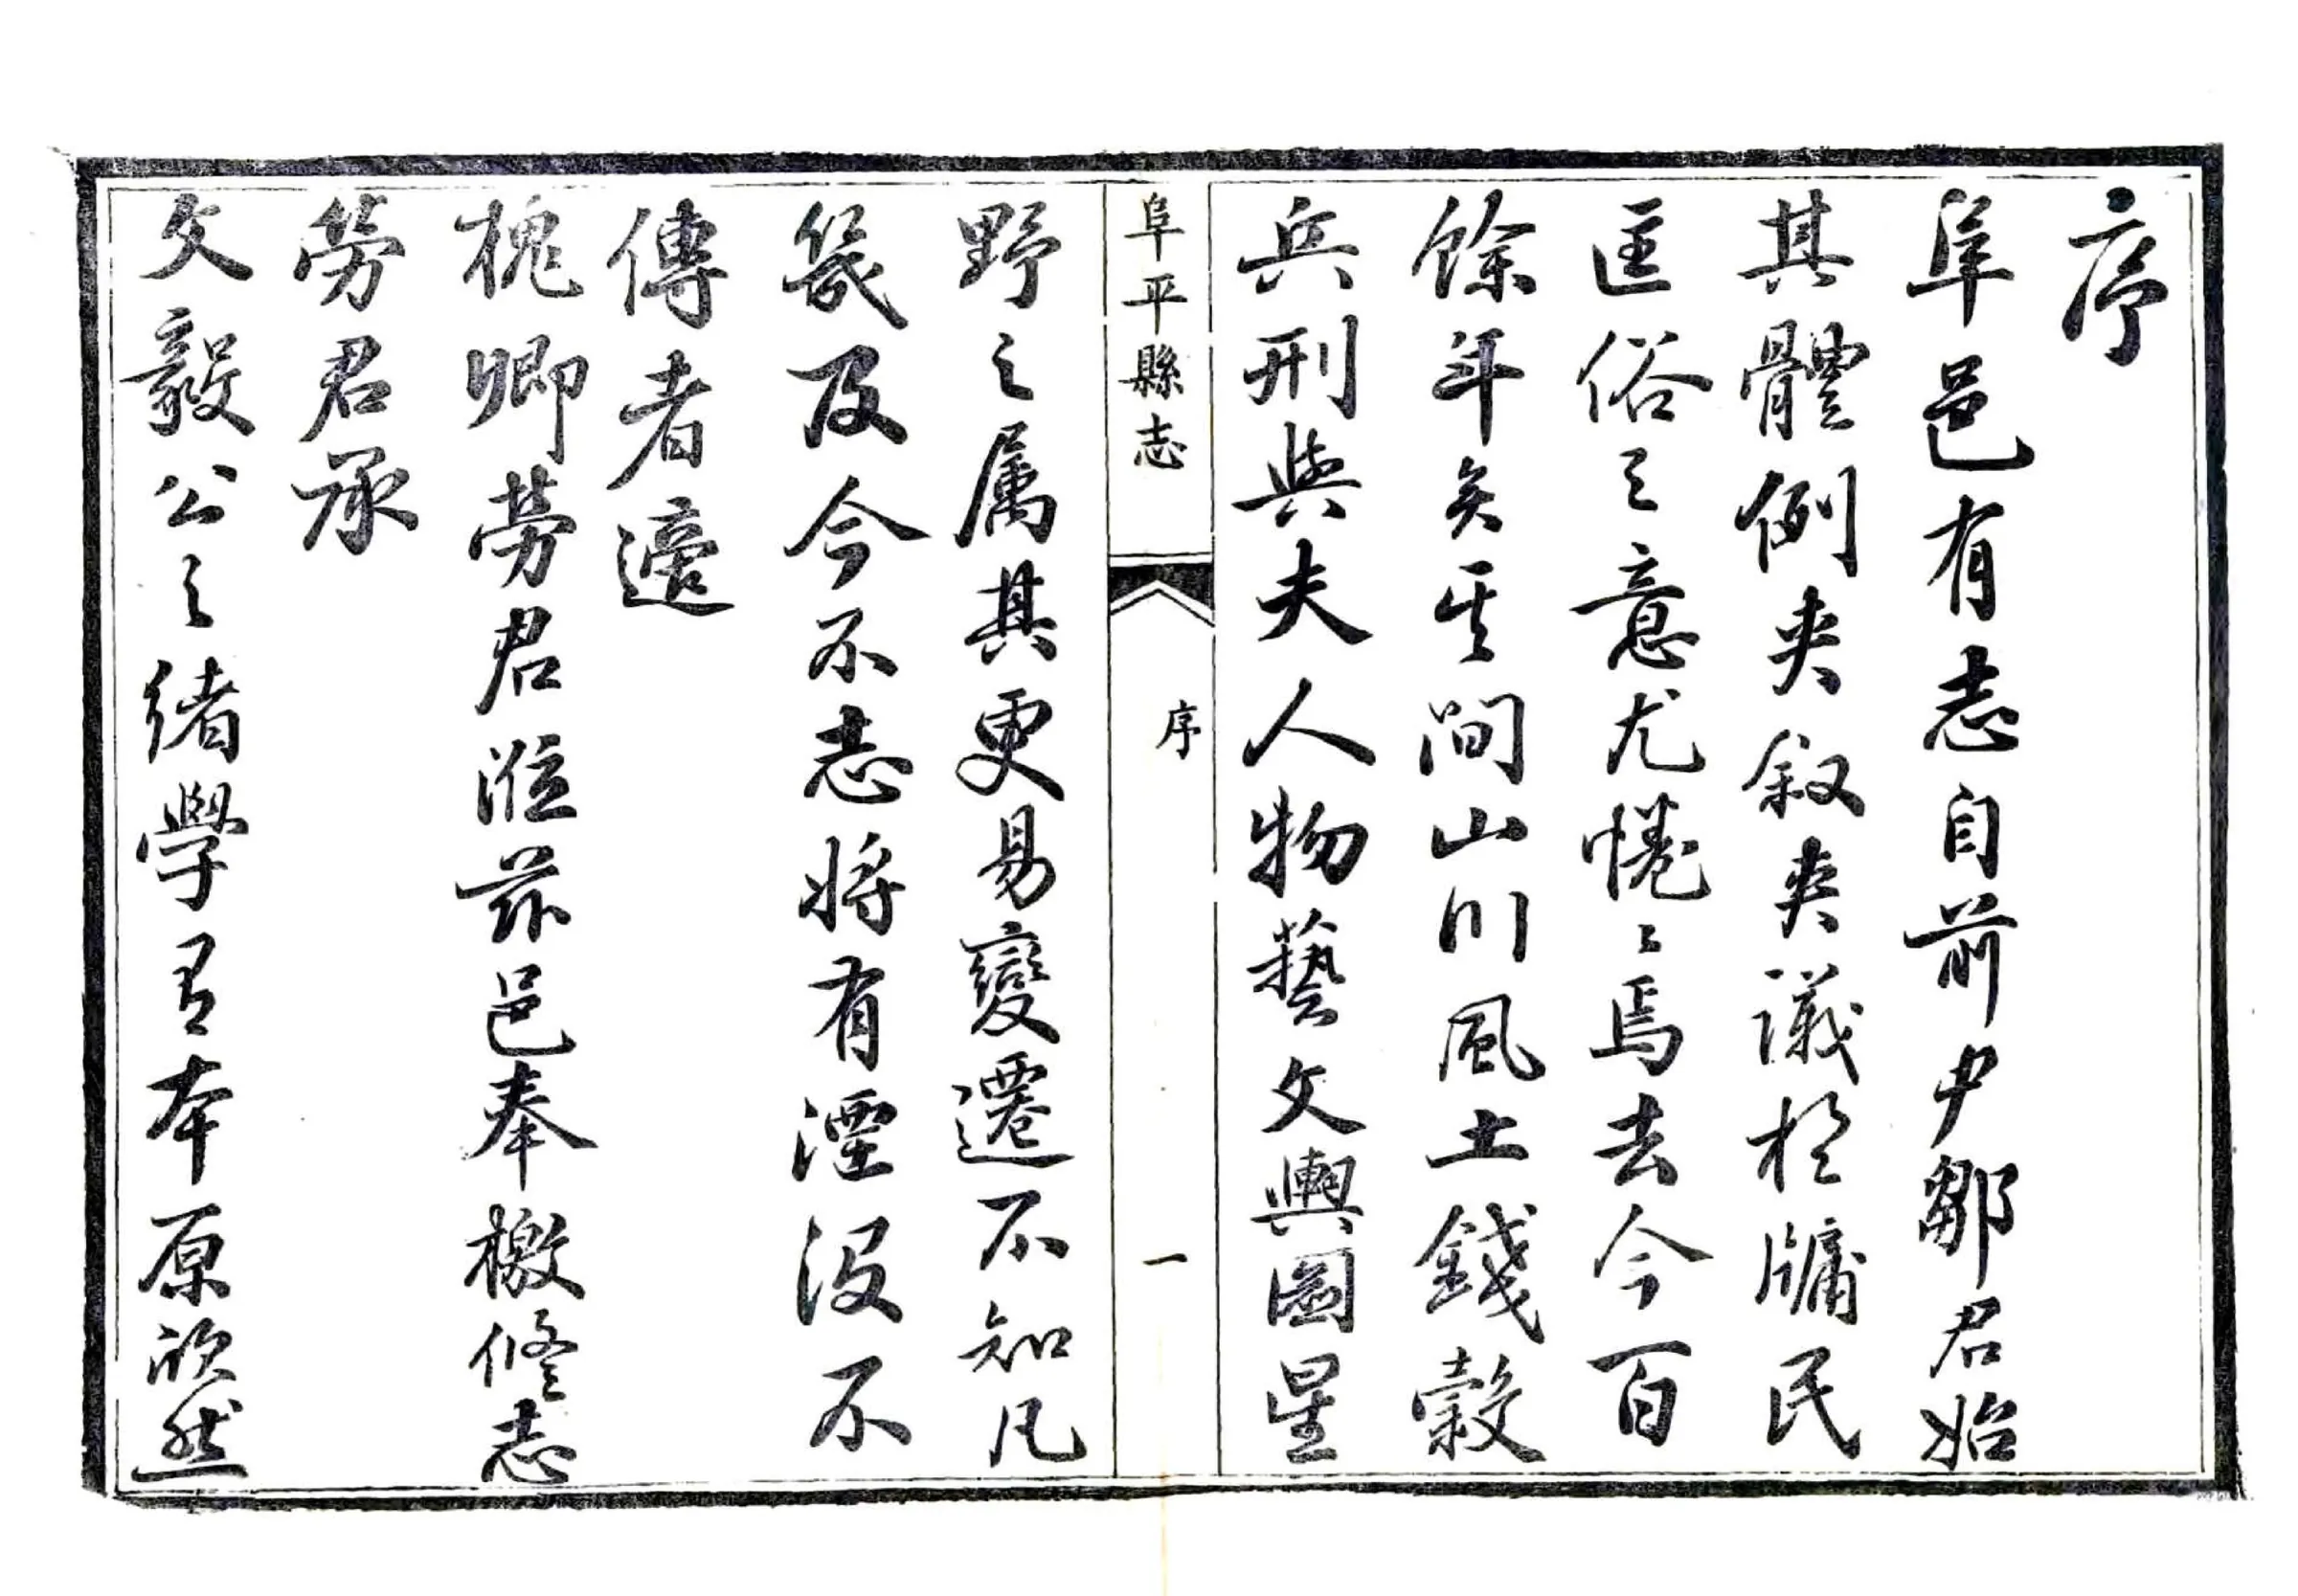 序
阜邑有志自前尹鄒君始
其體例夾叙夾議於牖民
匡俗之意尤惓〻焉去今百
餘年矣其間山川風土錢穀
兵刑與夫人物藝文輿圖星
阜平縣志
序
一
野之属其更易變遷不知凡
幾及今不志將有湮没不
傳者適
槐卿勞君涖茲邑奉檄修志
勞君承
文毅公之緒學有本原欣然